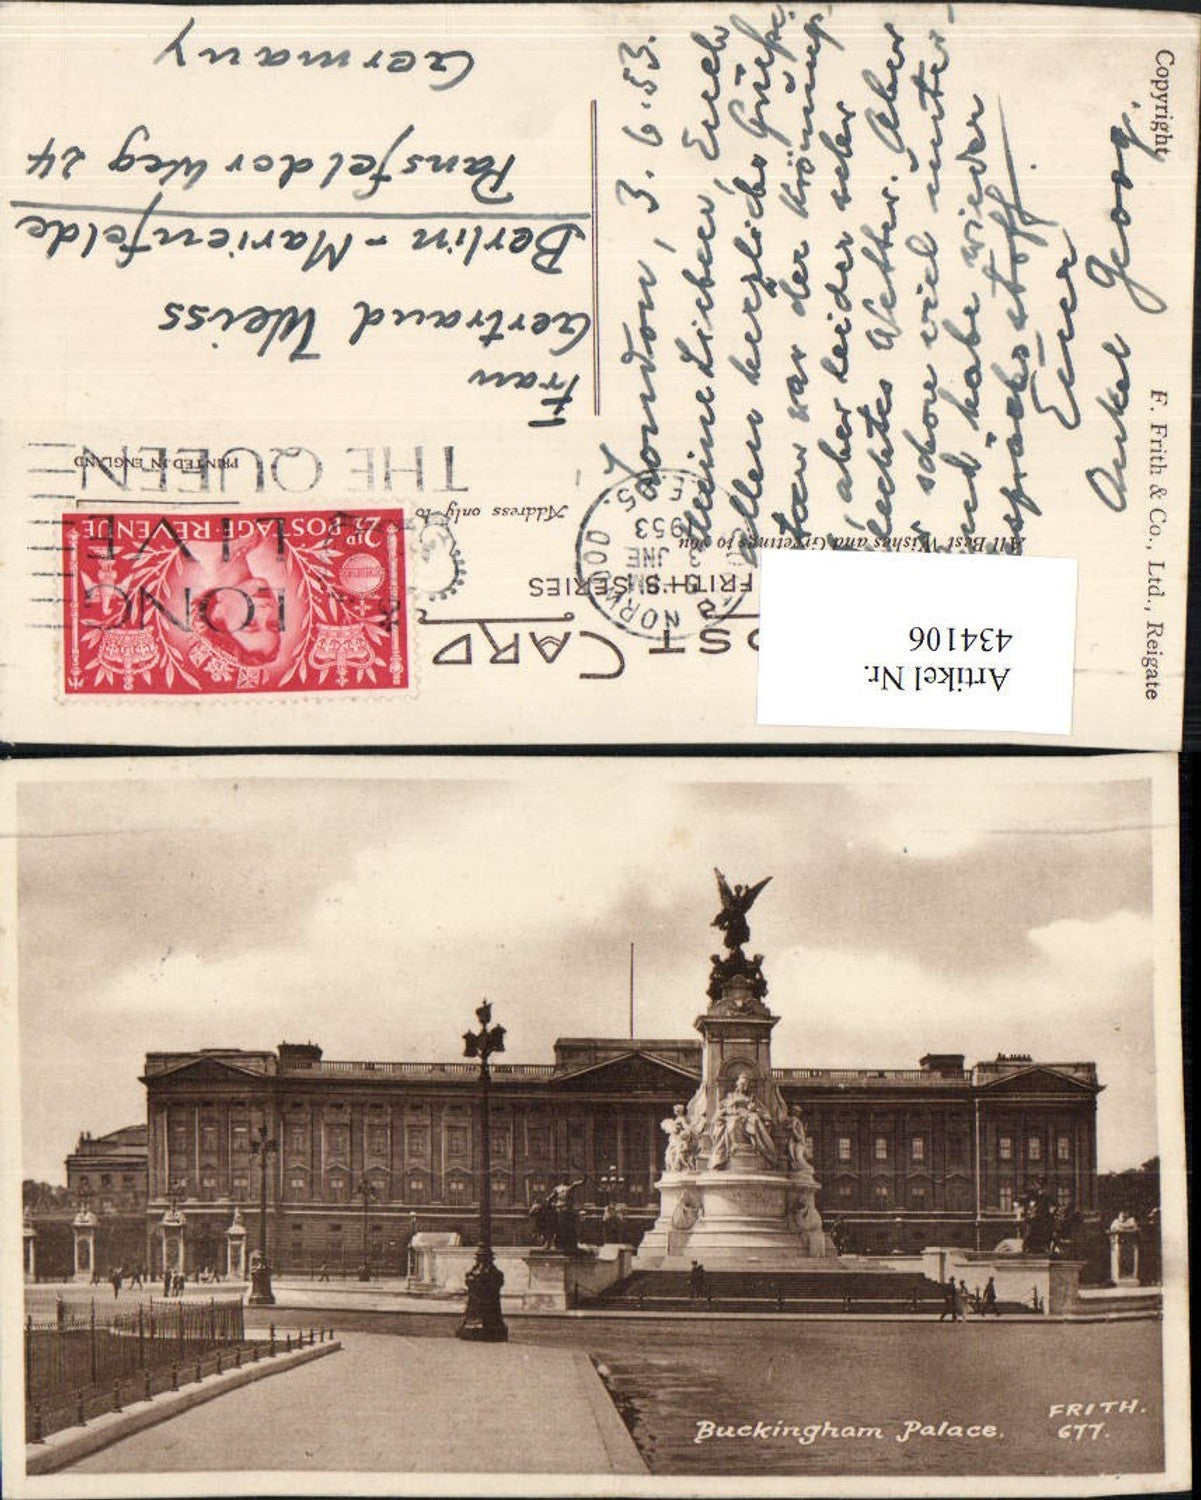 POST CARD
FRITH'S SERIES
All Best Wishes and Greetings to you
Address only to
PRINTED IN ENGLAND
Copyright
F. Frith & Co., Ltd., Reigate
Artikel Nr.
434106
2½D POSTAGE REVENUE
LONG
LIVE
THE QUEEN
NORWOOD
3 JNE
1953
S.E.
Frau
Gertraud Weiss
Berlin-Marienfelde
Tansfelder Weg 24
Germany
London, 3.6.53.
Meine Lieben, Euch
allen herzliche Grüße.
war der Krönung,
aber leider sehr
schlechtes Wetter. Aber
schon viel unter-
und habe wieder
sprachsstoff.
Euer
Onkel Georg.
Buckingham Palace.
FRITH.
677.